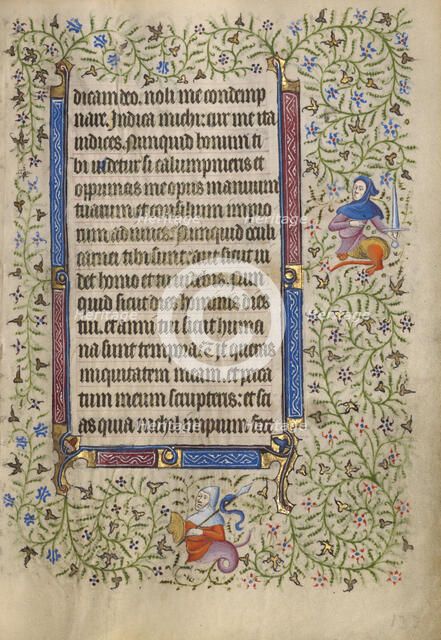 dicam deo. noli me condemp
nare. Indica michi: cur me ita
iudices. Nunquid bonum ti
bi videtur si calumpnieris et
opprimas me opus manuum
tuarum et consilium impio
rum adiuves. Nunquid oculi
carnei tibi sunt: aut sicut vi
det homo et tu videbis. Nun
quid sicut dies hominis dies
tui. et anni tui sicut huma
na sunt tempora. Ut queras
iniquitatem meam. et pecca
tum meum scrupteris: et sci
as quia nichil impium. fece